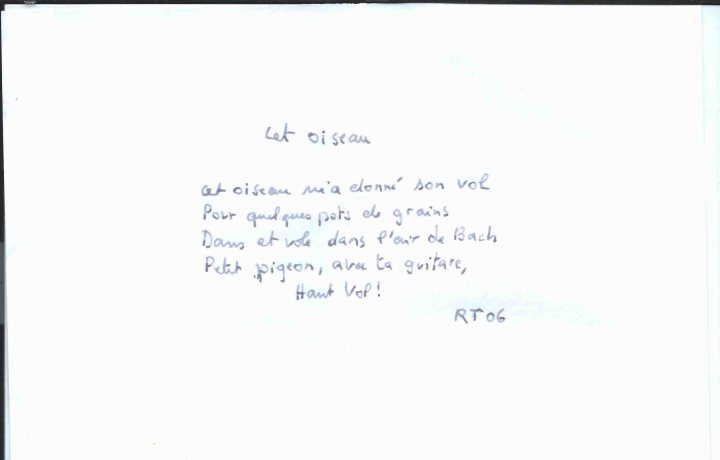 Cet oiseau
Cet oiseau m'a donné son vol
Pour quelques pots de grains
Dans et vole dans l'air de Bach
Petit pigeon, avec ta guitare,
Haut Vol!
RT06